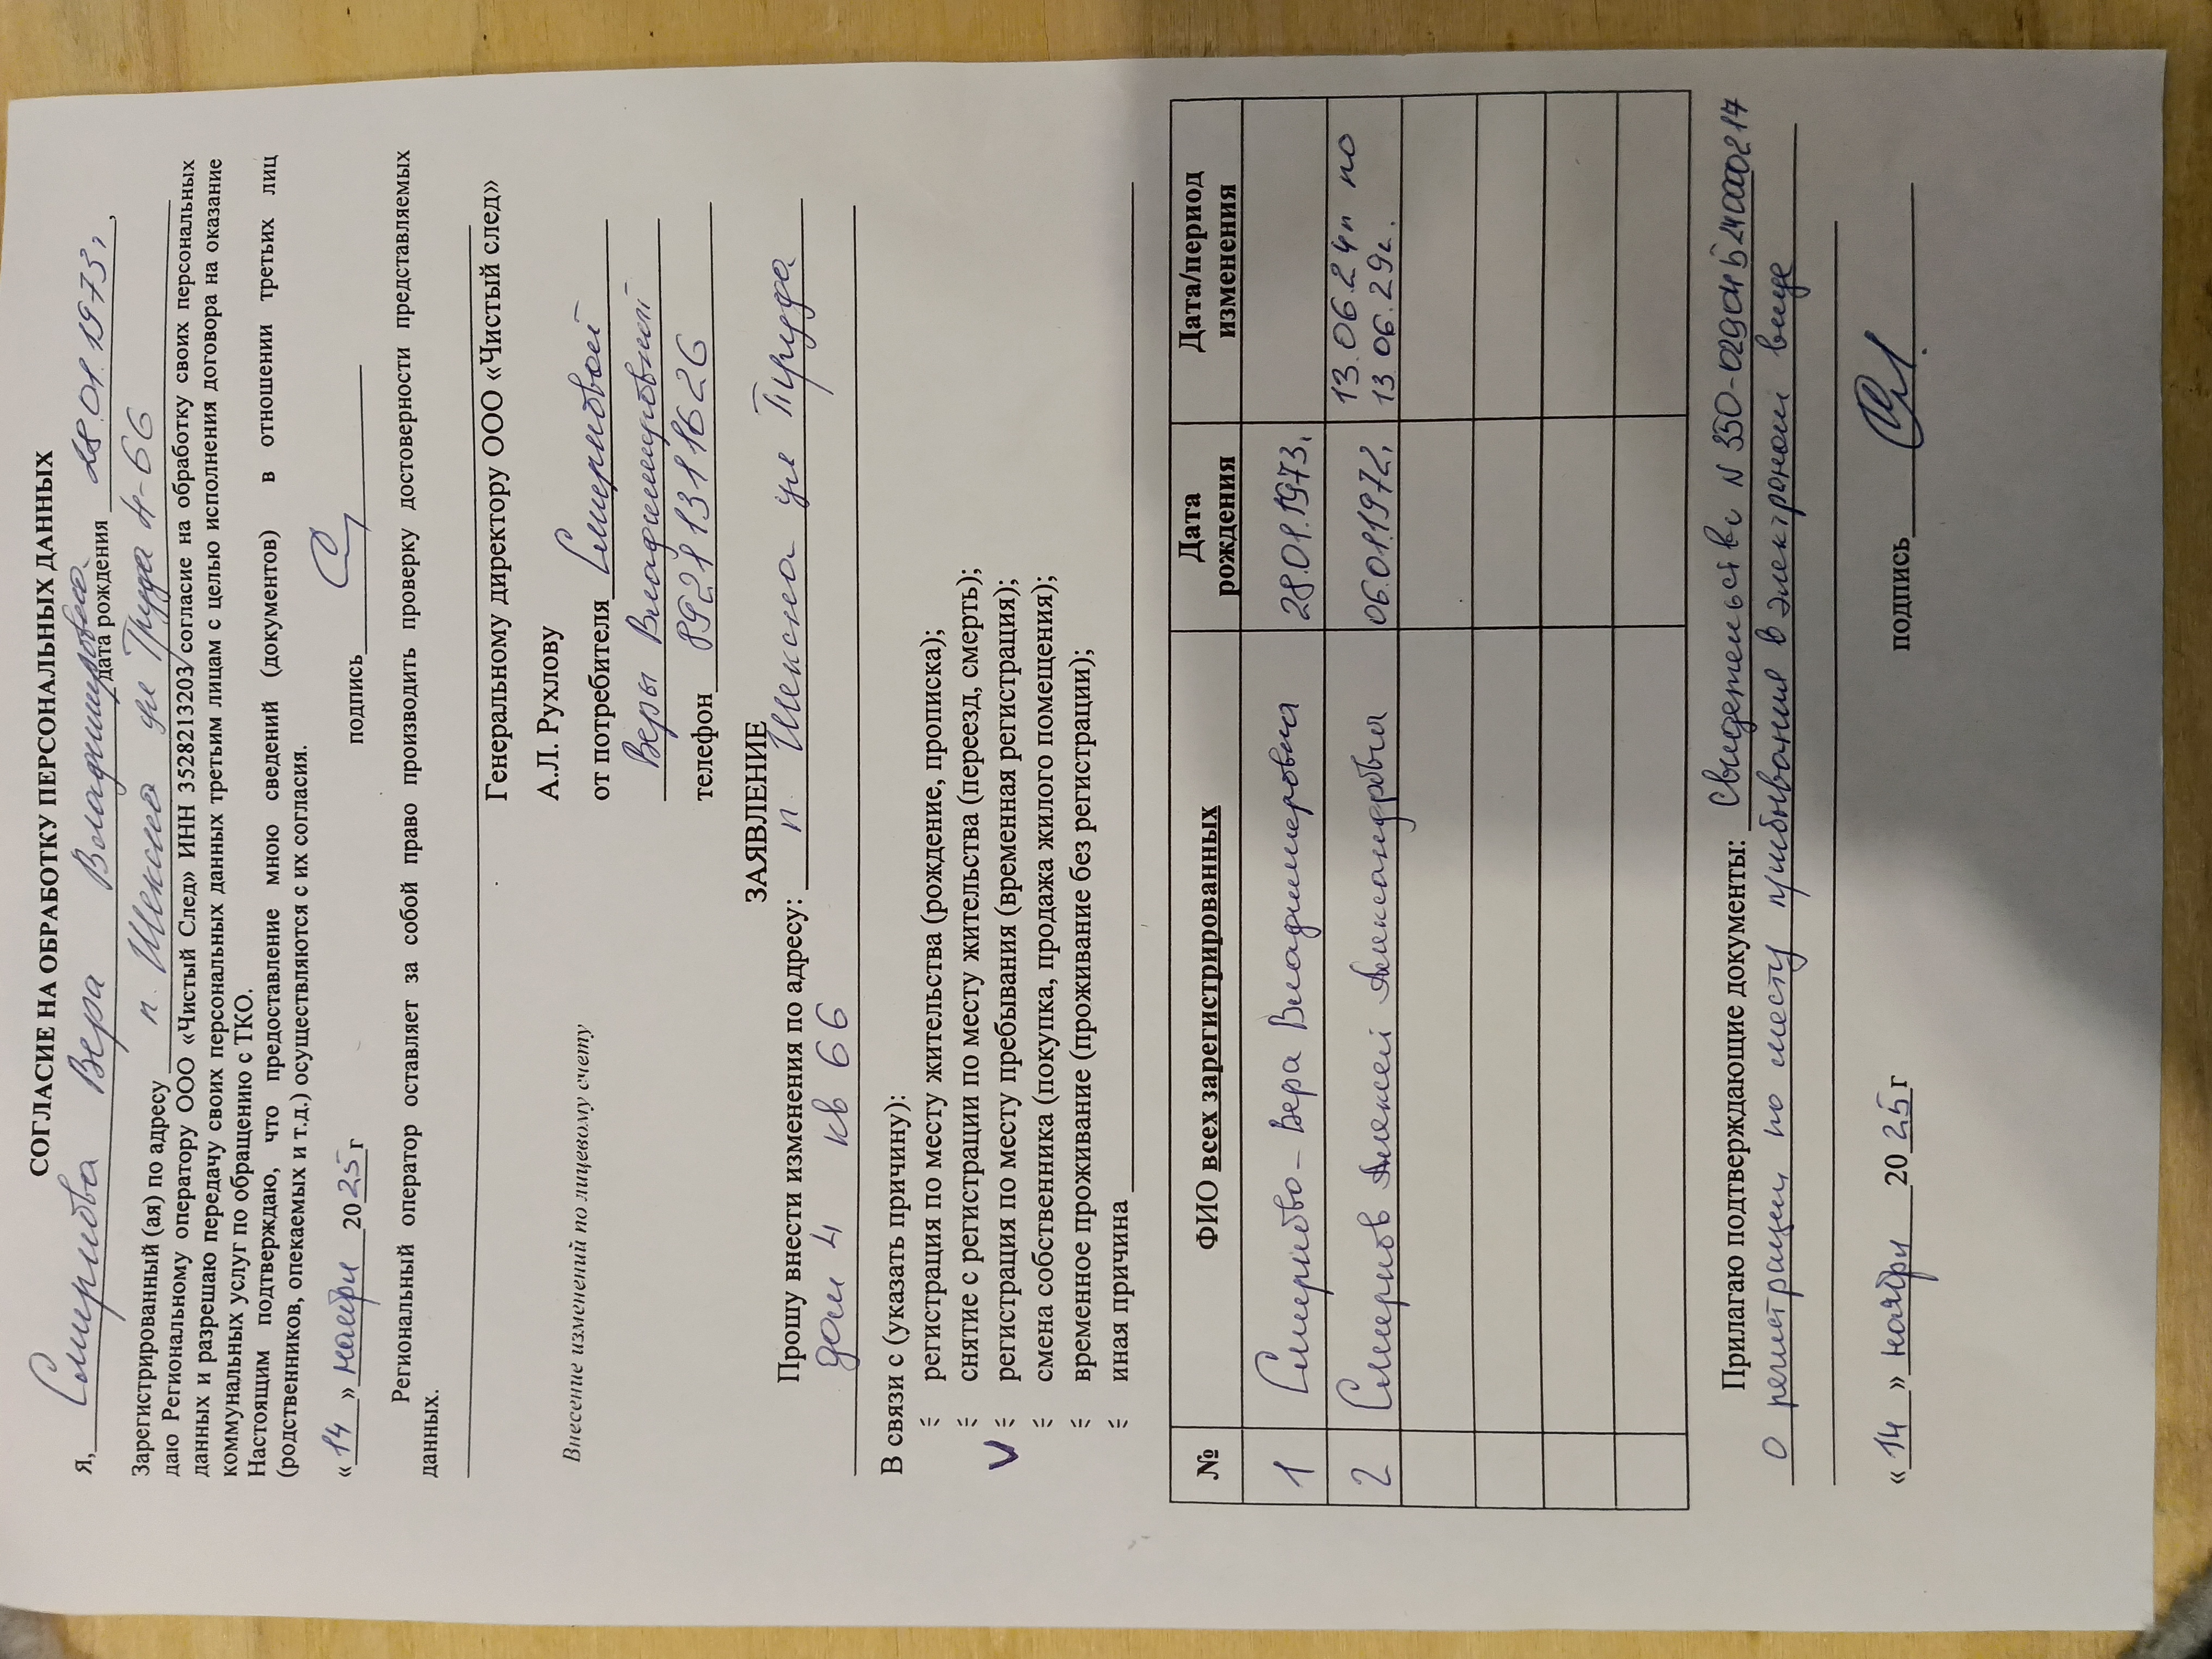 СОГЛАСИЕ НА ОБРАБОТКУ ПЕРСОНАЛЬНЫХ ДАННЫХ
Я, Смирнова Вера Владимировна дата рождения 28.01.1973,
Зарегистрированный (ая) по адресу п. Шексна ул Труда 4-66
даю Региональному оператору ООО «Чистый След» ИНН 3528213203 согласие на обработку своих персональных
данных и разрешаю передачу своих персональных данных третьим лицам с целью исполнения договора на оказание
коммунальных услуг по обращению с ТКО.
Настоящим подтверждаю, что предоставление мною сведений (документов) в отношении третьих лиц
(родственников, опекаемых и т.д.) осуществляются с их согласия.
«14» ноября 2025 г подпись
Региональный оператор оставляет за собой право производить проверку достоверности представляемых
данных.
Генеральному директору ООО «Чистый след»
А.Л. Рухлову
Внесение изменений по лицевому счету
от потребителя Смирновой
Веры Владимировной
телефон 89211311626
ЗАЯВЛЕНИЕ
Прошу внести изменения по адресу: п Шексна ул Труда
дом 4 кв 66
В связи с (указать причину):
регистрация по месту жительства (рождение, прописка);
снятие с регистрации по месту жительства (переезд, смерть);
V регистрация по месту пребывания (временная регистрация);
смена собственника (покупка, продажа жилого помещения);
временное проживание (проживание без регистрации);
иная причина
№ ФИО всех зарегистрированных Дата рождения Дата/период изменения
1 Смирнова - Вера Владимировна 28.01.1973.
2 Смирнов Алексей Александровия 06.01.1972. 13.06.24г по
13 06.29г.
Прилагаю подтверждающие документы: Свидетельство N
о регистрации по месту пребывания в электроном виде
«14» ноября 2025 г подпись